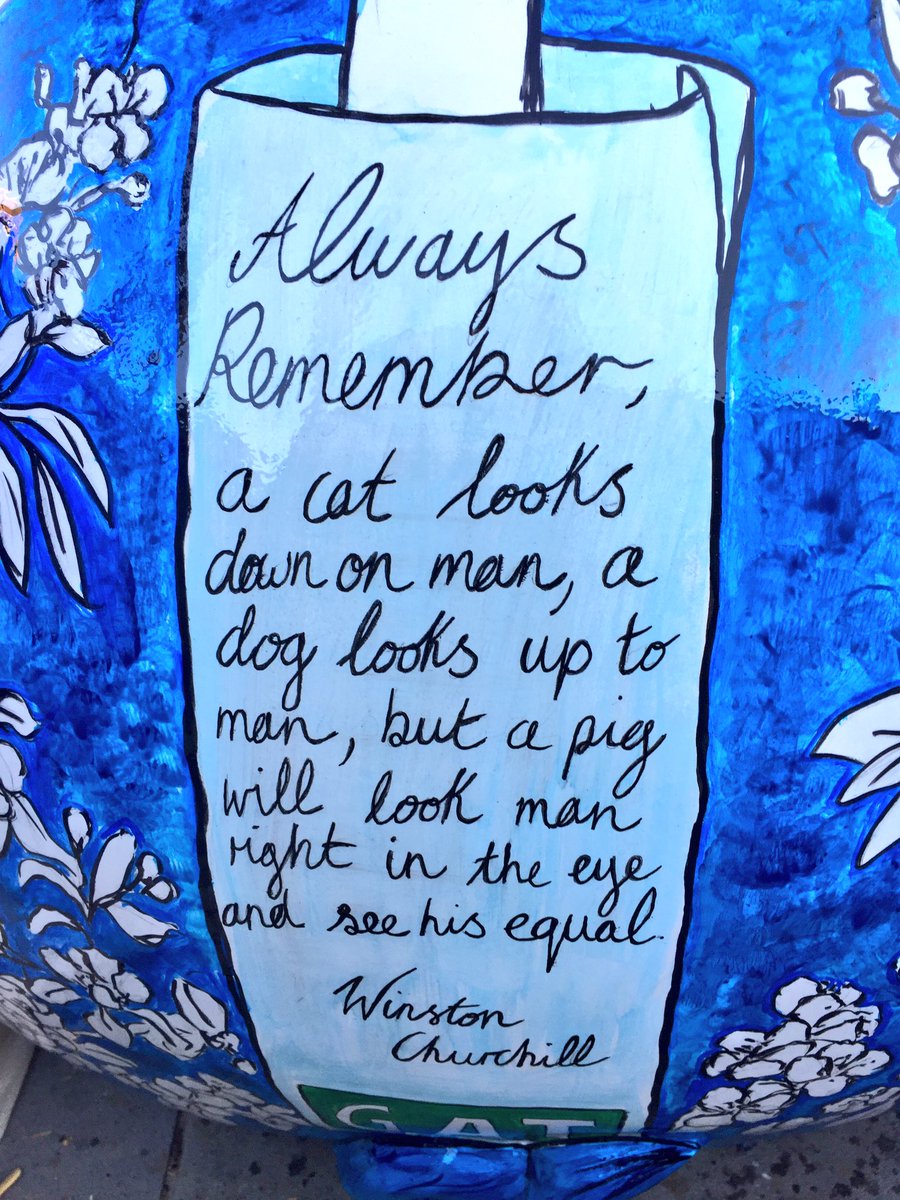 Always
Remember,
a cat looks
down on man, a
dog looks up to
man, but a pig
will look man
right in the eye
and see his equal.
Winston
Churchill
GAT